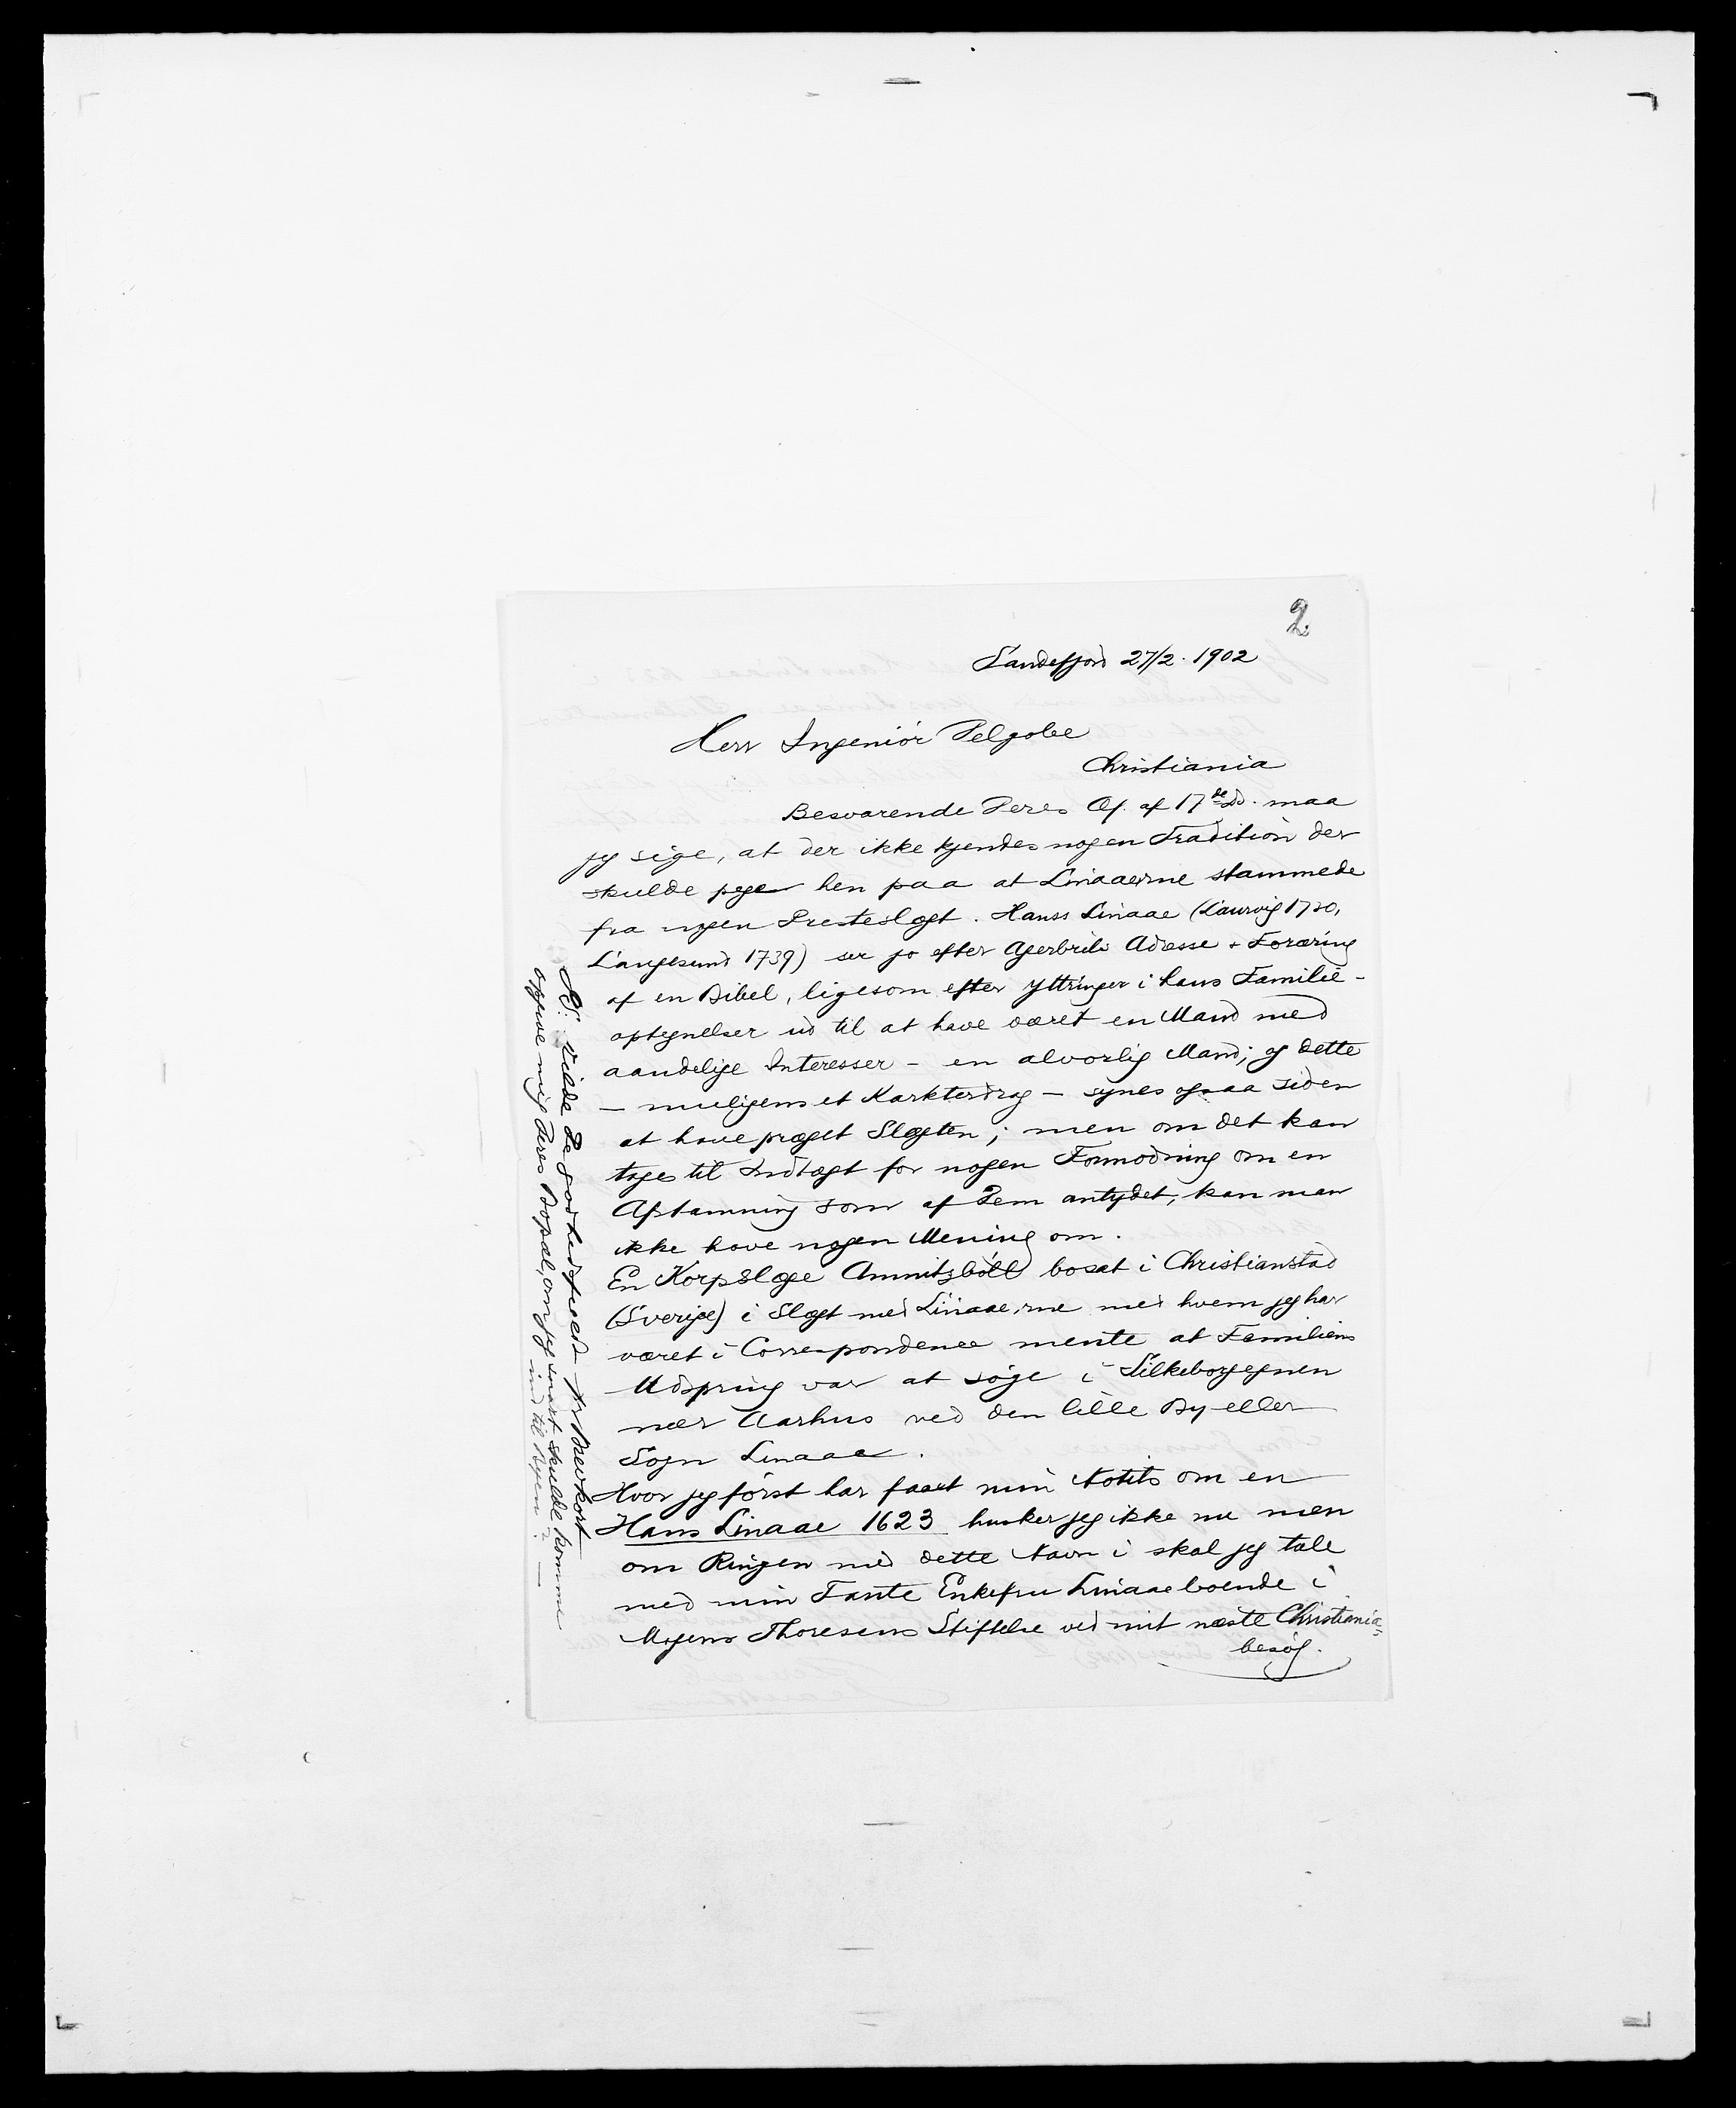 2.
Sandefjord 27/2. 1902
Herr Ingeniör Delgobe
Christiania
Besvarende Deres Af. af 17de ds. maa
jeg sige, at der ikke kjendes nogen Tradition der
skulde pege hen paa at Linaaerne stammede
fra nogen Presteslægt. Hans Linaae (Laurvig 1720,
Langesund 1739) ser jo efter Adresse + Foræring
af en Bibel, ligesom efter Yttringer i hans Familie-
optegnelser ud til at have været en Mand med
aandelige Interesser - en alvorlig Mand; og dette
- muligens et Karktertrag - synes ogsaa siden
at have præget Slægten; men om det kan
tages til Indtægt for nogen Formodning om en
Afstamning som af Dem antydet, kan man
ikke have nogen Mening om.
En Korpslæge Ammitzböll bosat i Christianstad
(Sverige) i Slægt med Linaaerne med hvem jeg har
været i Correspondence mente at Familiens
Udspring var at söge i Silkeborgegnen
nær Aarhus ved den lille By eller
Sogn Linaae.
Hvor jeg först har faaet min Notits om en
Hans Linaae 1623 husker jeg ikke nu men
om Ringen med dette Navn i skal jeg tale
med min Tante Enkefru Linaae boende i
Mogens Thoresens Stiftelse ved mit næste Christiania-
besög.
PS. Vilde De godhedsfuldt pr Brevkort
opgive mig Deres Bopæl, om jeg snart skulde komme
ind til Byen? —